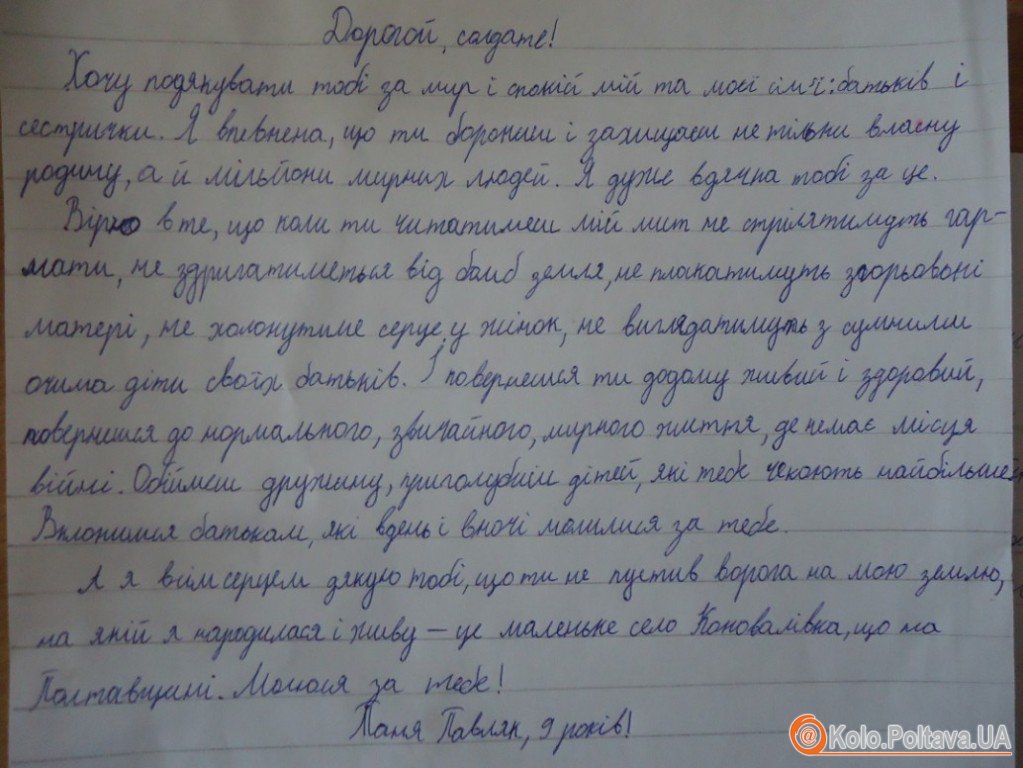 Дорогой, солдате!
Хочу подякувати тобі за мир і спокій мій та моєї сім'ї: батьків і
сестрички. Я впевнена, що ти борониш і захищаєш не тільки власну
родину, а й мільйони мирних людей. Я дуже вдячна тобі за це.
Вірю в те, що коли ти читатимеш мій лист не стрілятимуть гар-
мати, не здригатиметься від бомб земля, не плакатимуть згорьовані
матері, не холонутиме серце у жінок, не виглядатимуть з сумними
очима діти своїх батьків. І повернешся ти додому живий і здоровий,
повернешся до нормального, звичайного, мирного життя, де немає місця
війні. Обіймеш дружину, приголубиш дітей, які тебе чекають найбільше.
Вклонишся батькам, які вдень і вночі молилися за тебе.
А я всім серцем дякую тобі, що ти не пустив ворога на мою землю,
на якій я народилася і живу – це маленьке село Коновалівка, що на
Полтавщині. Молюся за тебе!
Таня Павляк, 9 років!
@Kolo.Poltava.UA